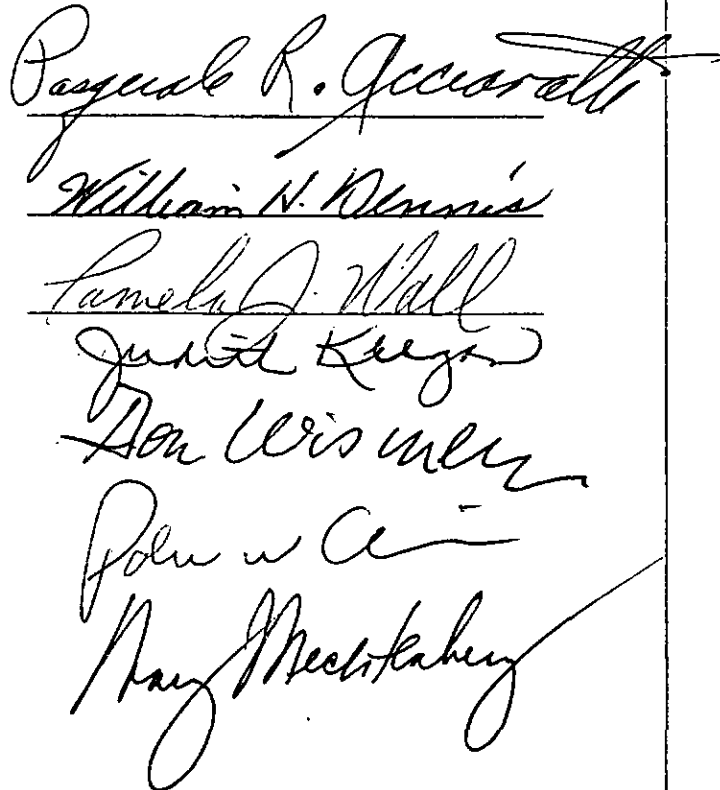 Pasquale R. Acciavatti
William H. Dennis
Pamela J. Wall
Judith Keegan
Don Wismer
Mary Mechtenberg